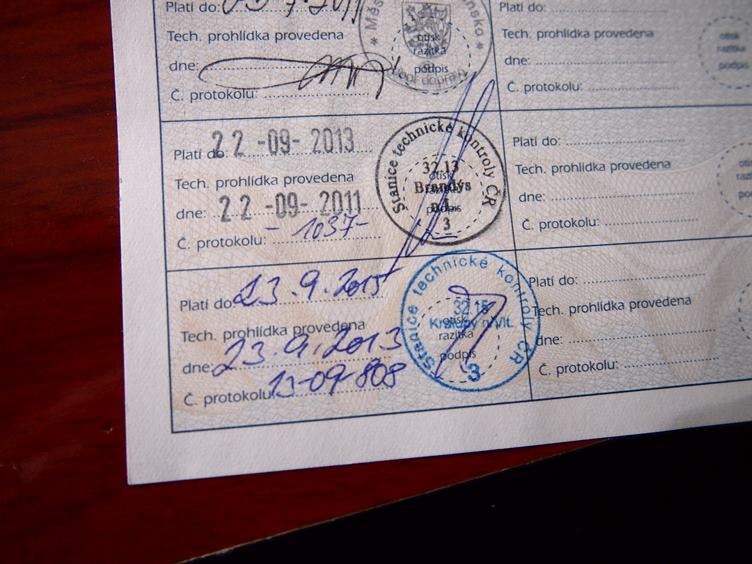 Platí do:
Tech. prohlídka provedena
dne:
Č. protokolu:
otisk
razítka
podpis
Platí do:
Tech. prohlídka provedena
dne:
Č. protokolu:
Platí do: 22 -09- 2013
Tech. prohlídka provedena
dne: 22 -09- 2011
Č. protokolu: - 1037-
Stanice technické kontroly ČR
32.13
Brandýs
n.L
3
podpis
Platí do:
Tech. prohlídka provedena
dne:
Č. protokolu:
Platí do: 23.9.2015
Tech. prohlídka provedena
dne: 23.9.2013
Č. protokolu: 13-09-808
Stanice technické kontroly ČR
32.15
Kralupy n/Vlt.
otisk
razítka
podpis
3
Platí do:
Tech. prohlídka provedena
dne:
Č. protokolu: